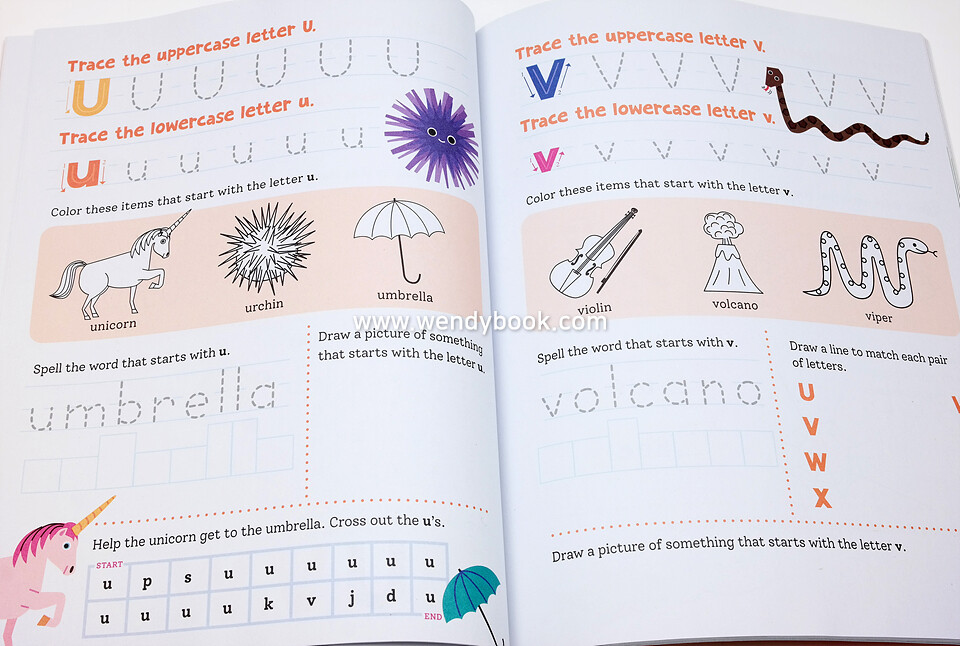 Trace the uppercase letter U.
U U U U U U
Trace the lowercase letter u.
u u u u u u
Color these items that start with the letter u.
unicorn
urchin
umbrella
Spell the word that starts with u.
umbrella
Draw a picture of something
that starts with the letter u.
Help the unicorn get to the umbrella. Cross out the u's.
START
u p s u u u u u u
u u u u k v j d u
END
Trace the uppercase letter V.
V V V V V V V
Trace the lowercase letter v.
v v v v v v v
Color these items that start with the letter v.
violin
volcano
viper
www.wendybook.com
Spell the word that starts with v.
volcano
Draw a line to match each pair
of letters.
U
V
W
X
Draw a picture of something that starts with the letter v.